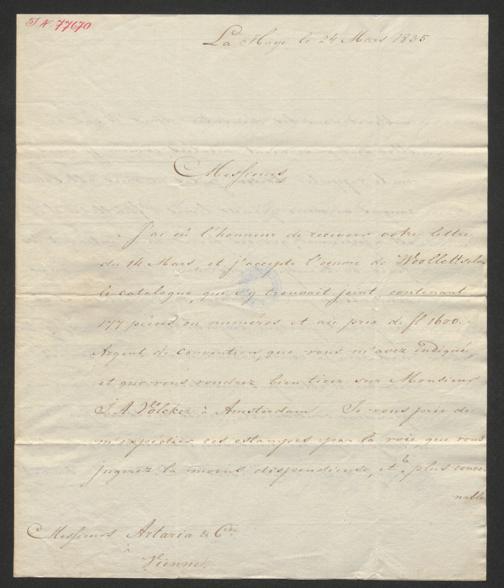 J N 77670
La Haye le 24 Mars 1835
Messieurs
J'ai eû l'honneur de recevoir votre lettre
du 14 Mars, et j'accepte l'oeuvre de Woollett selon
le catalogue, que s'y trouvait joint, contenant
177 pièces ou numéros et au prix de fl 1600.
Argent de convention, que vous m'avez indiqué
et que vous voudrez bien tirer sur Monsieur
J. A. Völcker à Amsterdam. Je vous prie de
m'expédier ces estampes par la voie que vous
jugerez la moins dispendieuse, et la plus conve-
nable
Messieurs Artaria & Cie
à
Vienne.